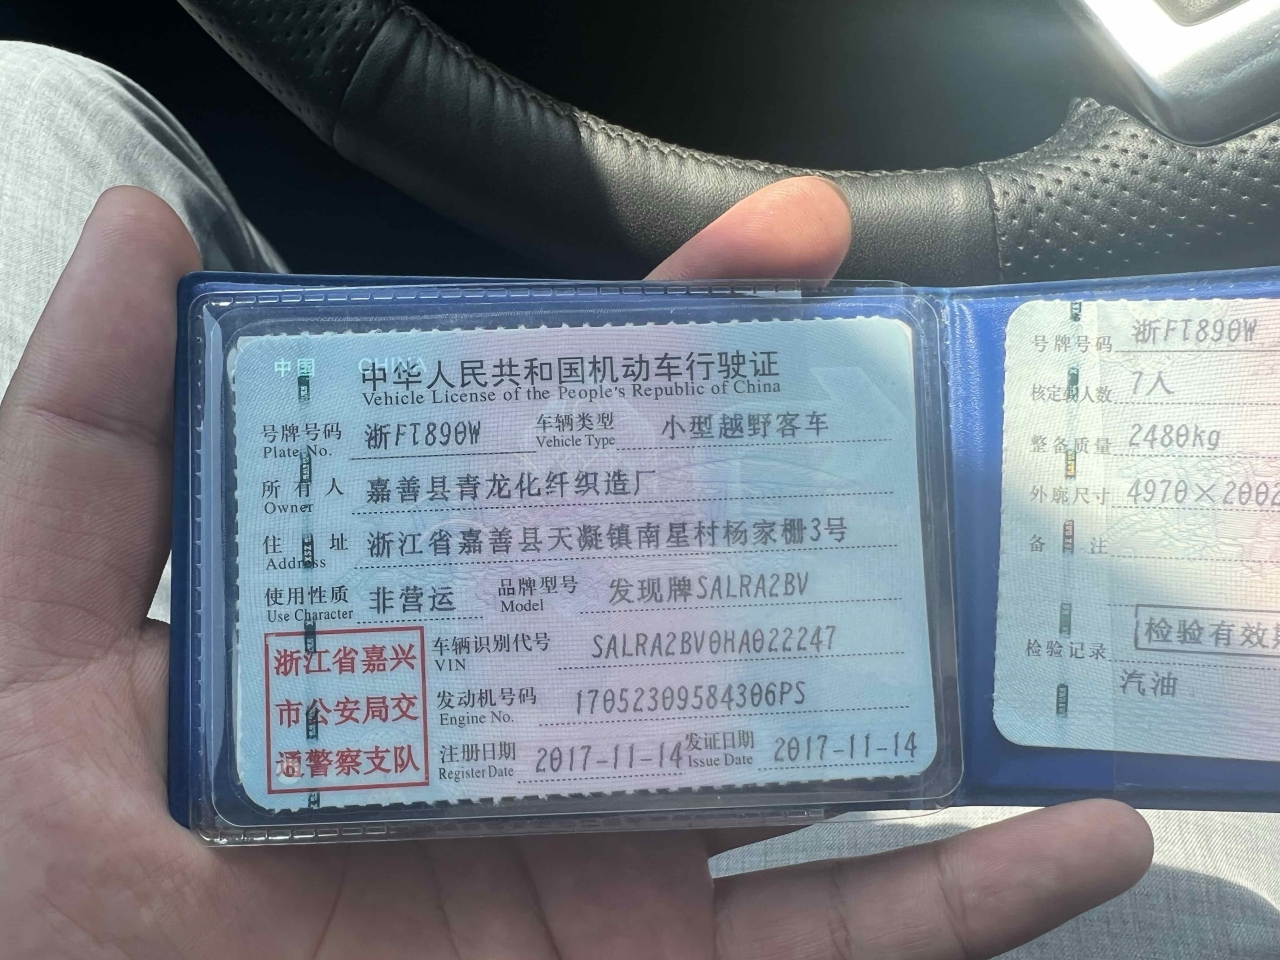 中国 CHINA
中华人民共和国机动车行驶证
Vehicle License of the People's Republic of China
号牌号码 浙FT890W 车辆类型 小型越野客车
Plate No. Vehicle Type
所有人 嘉善县青龙化纤织造厂
Owner
住址 浙江省嘉善县天凝镇南星村杨家栅3号
Address
使用性质 非营运 品牌型号 发现牌SALRA2BV
Use Character Model
浙江省嘉兴
市公安局交
通警察支队
车辆识别代号 SALRA2BV0HA022247
VIN
发动机号码 17052309584306PS
Engine No.
注册日期 2017-11-14 发证日期 2017-11-14
Register Date Issue Date
号牌号码 浙FT890W
核定载人数 7人
整备质量 2480kg
外廓尺寸 4970×200
备注
检验记录 检验有效
汽油